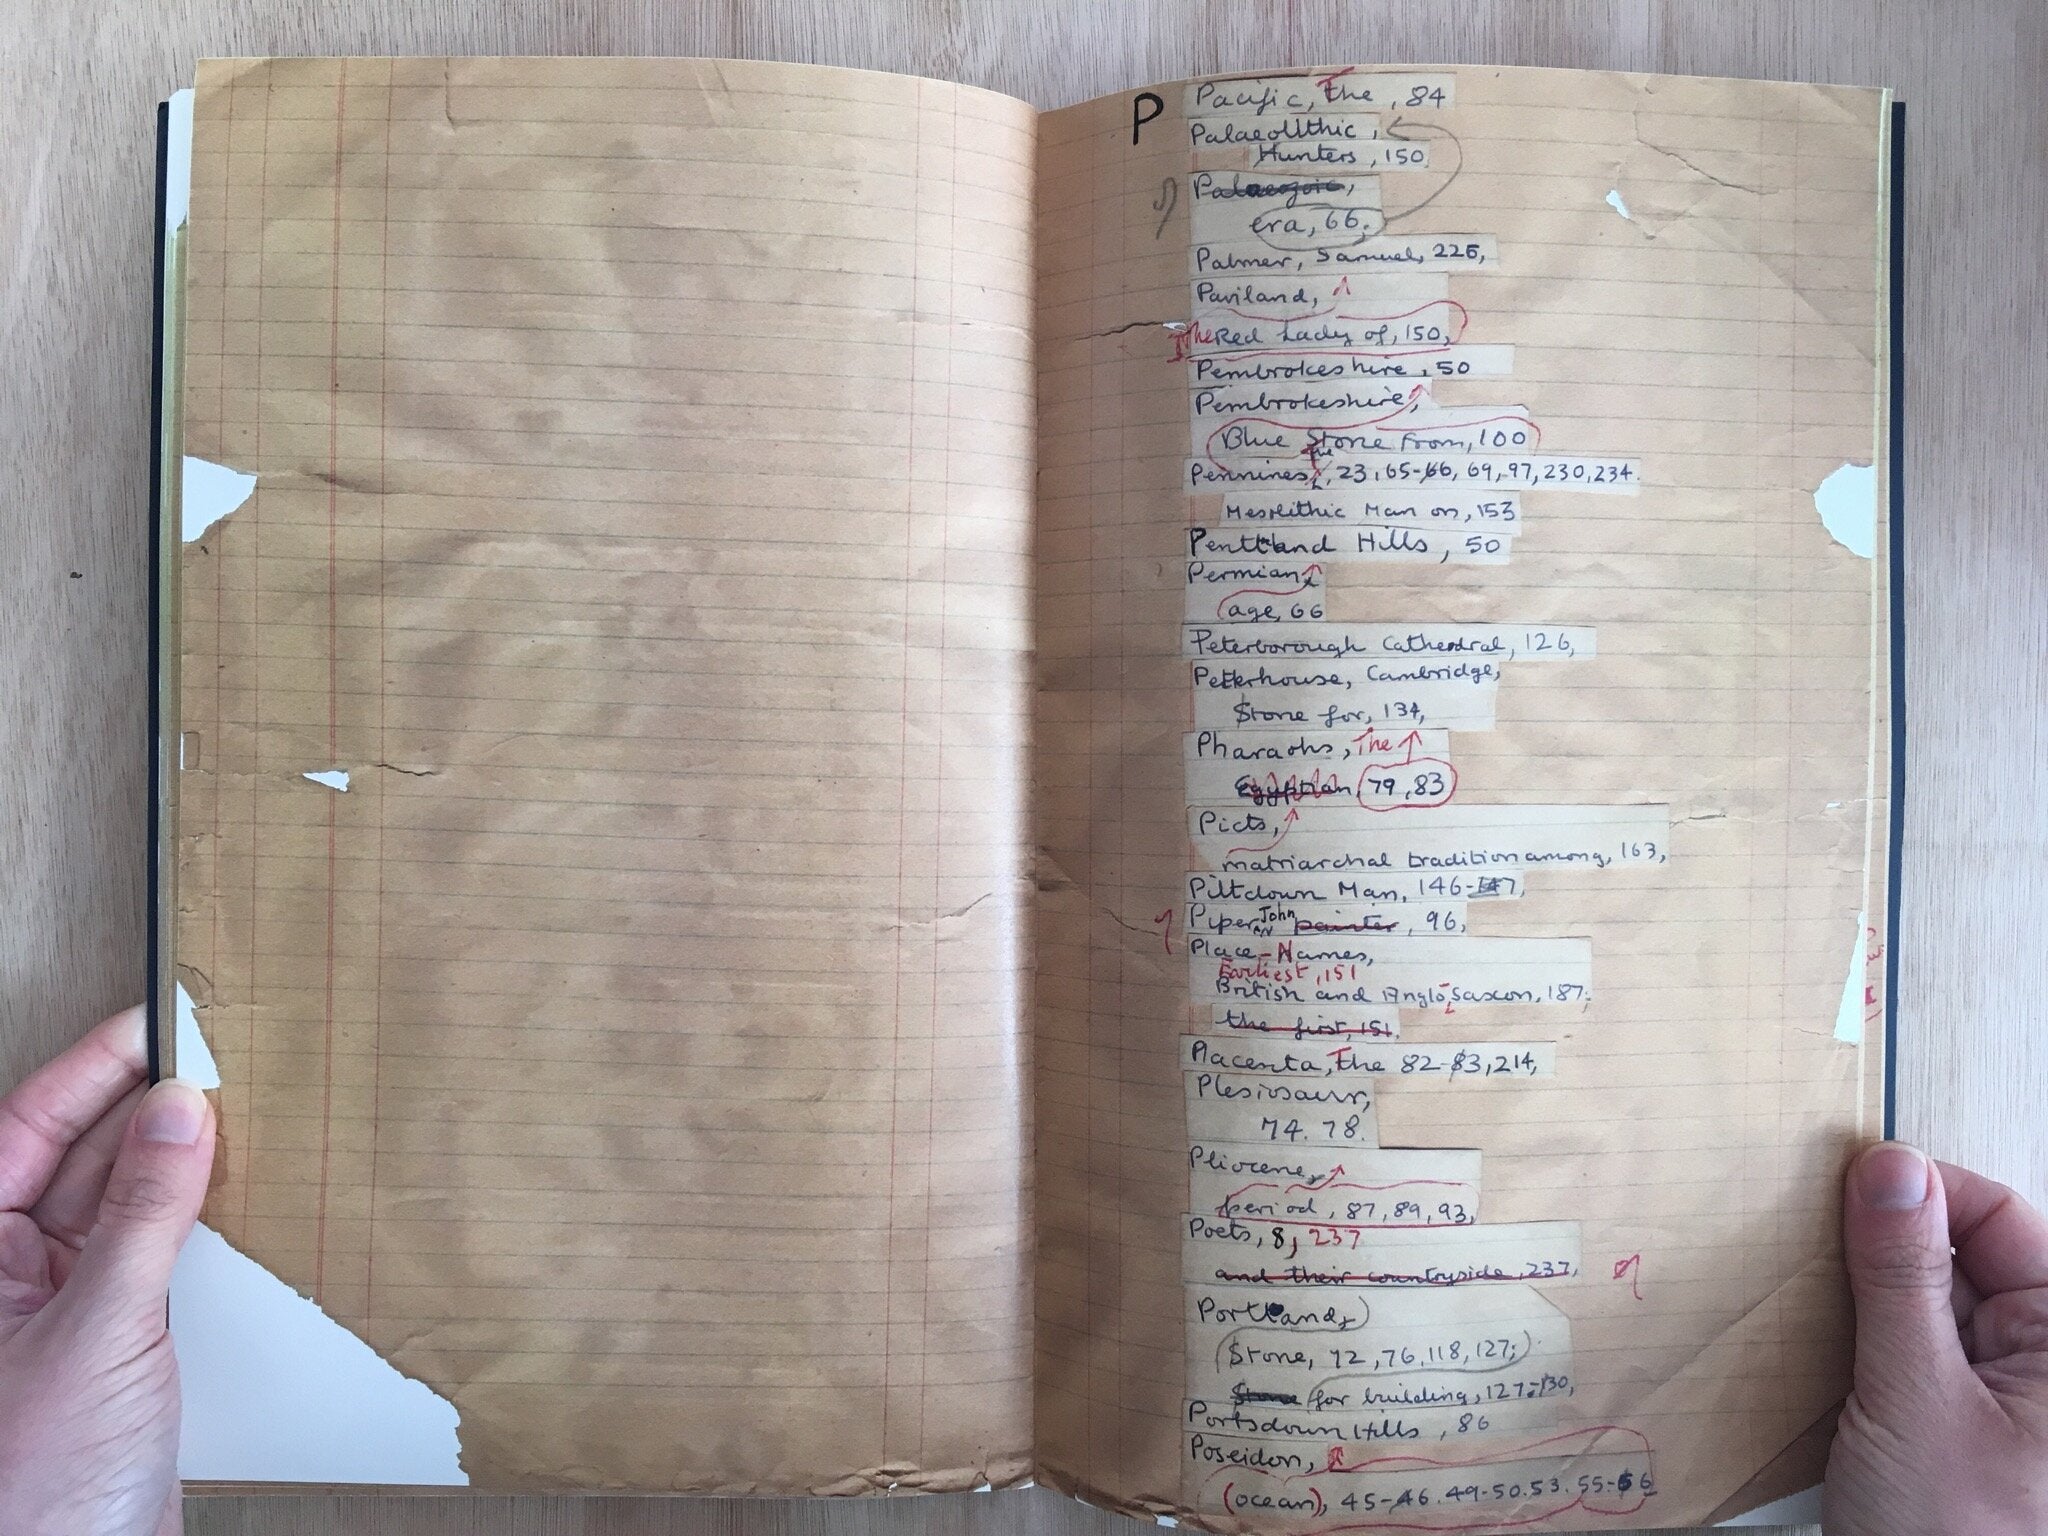 P
Pacific, The, 84
Palaeolithic,
Hunters, 150
Palaeozoic,
era, 66,
Palmer, Samuel, 225,
Paviland,
The Red Lady of, 150,
Pembrokeshire, 50
Pembrokeshire,
Blue Stone From, 100
Pennines, the, 23, 65-66, 69, 97, 230, 234.
Mesolithic Man on, 153
Pentland Hills, 50
Permian,
age, 66
Peterborough Cathedral, 126,
Peterhouse, Cambridge,
Stone for, 134,
Pharaohs, The
Egyptian, 79, 83
Picts,
matriarchal tradition among, 163,
Piltdown Man, 146-147,
Piper, John painter, 96,
Place-Names,
Earliest, 151
British and Anglo-Saxon, 187;
the first, 151.
Placenta, The 82-83, 214,
Plesiosaur,
74. 78.
Pliocene,
period, 87, 89, 93,
Poets, 8, 237
and their countryside, 237,
Portland,
Stone, 72, 76, 118, 127;
Stone for building, 127-130,
Portsdown Hills, 86
Poseidon,
(ocean), 45-46. 49-50. 53. 55-56